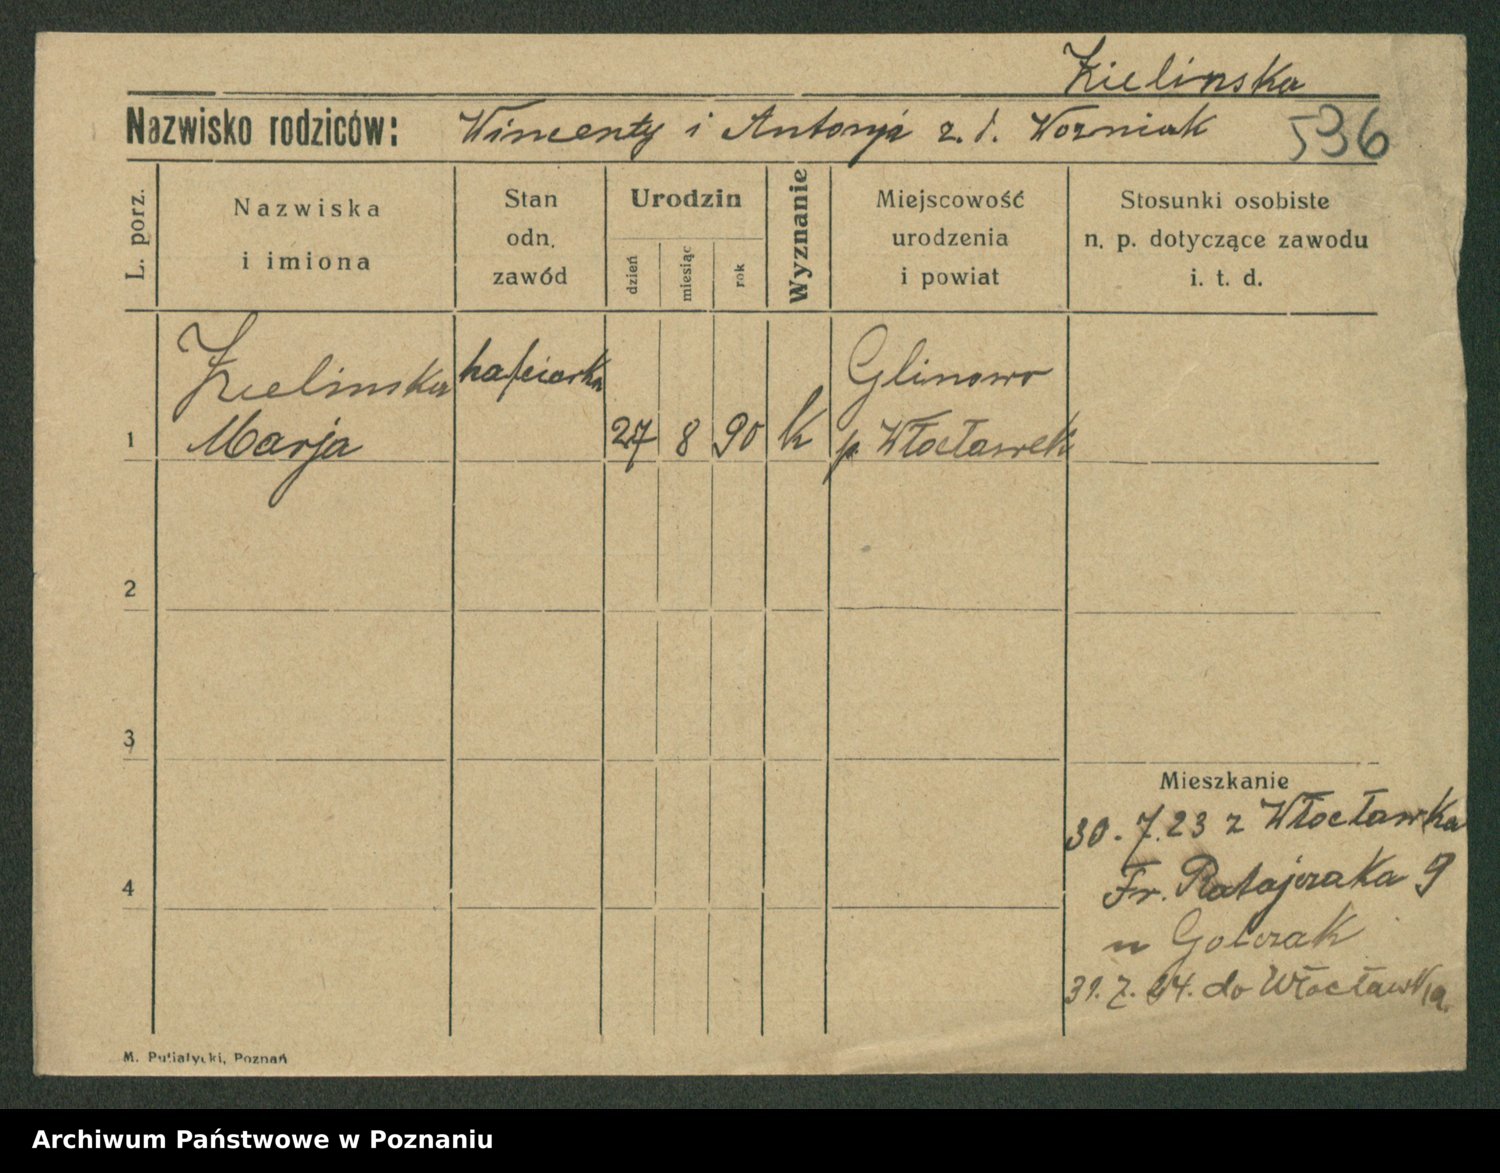 Zielinska
Nazwisko rodziców: Wincenty i Antonja z. d. Wozniak 536
L. porz.
Nazwiska
i imiona
Stan
odn.
zawód
Urodzin
dzień
miesiąc
rok
Wyznanie
Miejscowość
urodzenia
i powiat
Stosunki osobiste
n. p. dotyczące zawodu
i. t. d.
Zielinska hafciarka Glinowo
1 Marja 27 8 90 k p. Włocławek
2
3
Mieszkanie
30. 7. 23 z Włocławka
4 Fr. Ratajczaka 9
u Golczak
31. 7. 24. do Włocławka.
M. Putiatycki, Poznań
Archiwum Państwowe w Poznaniu